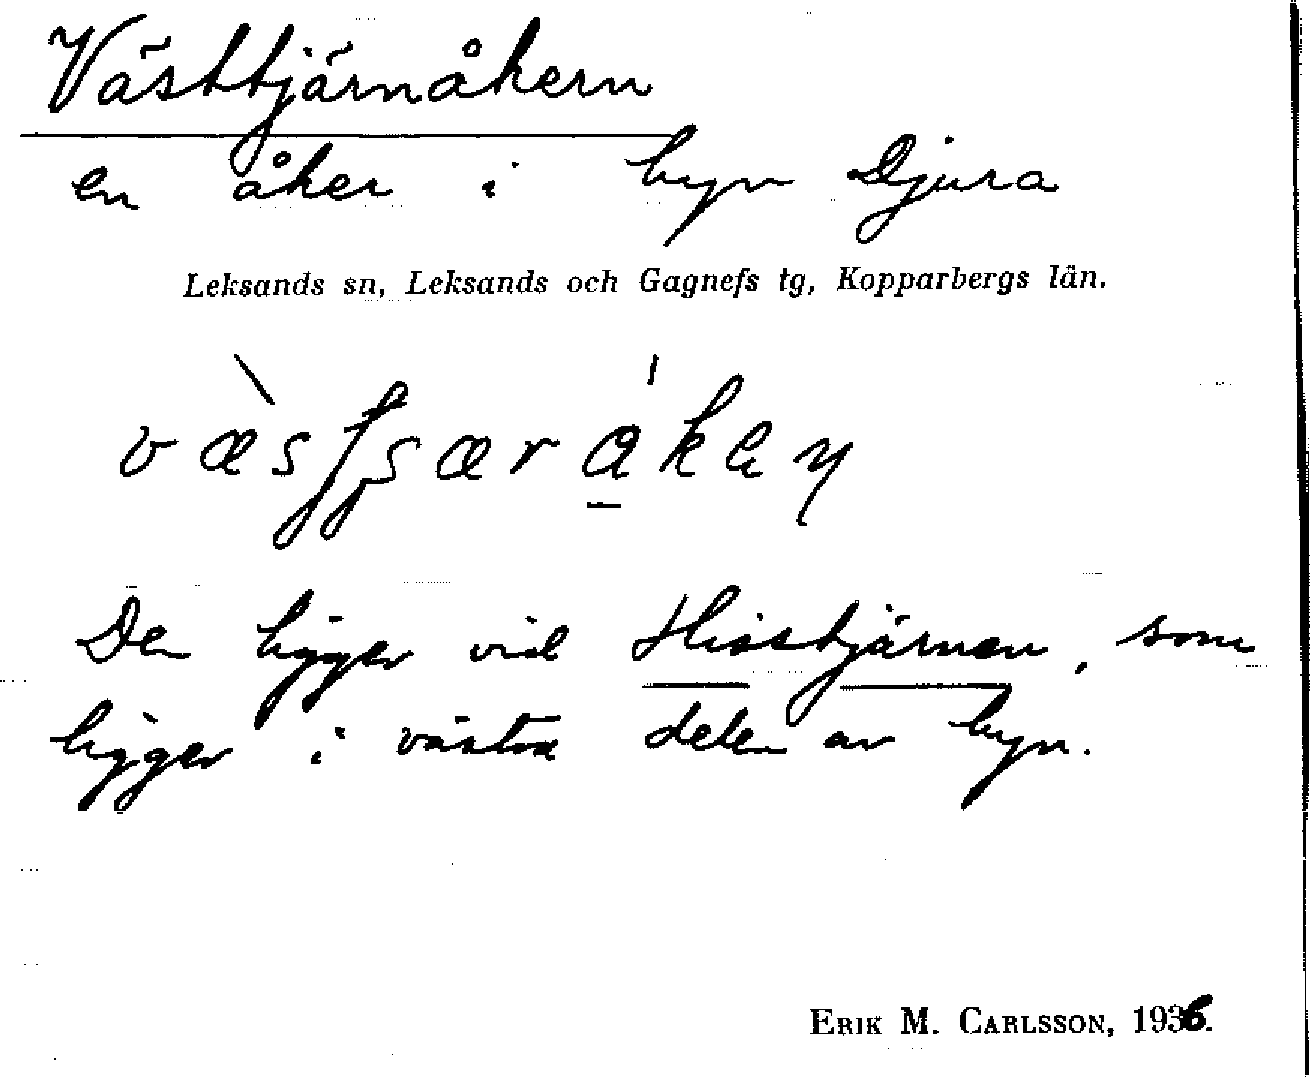 Västtjärnåkern
en åker i byn Djura
Leksands sn, Leksands och Gagnefs tg, Kopparbergs län.
Den ligger vid Hisstjärnen, som
ligger i västra delen av byn.
ERIK M. CARLSSON, 1936.